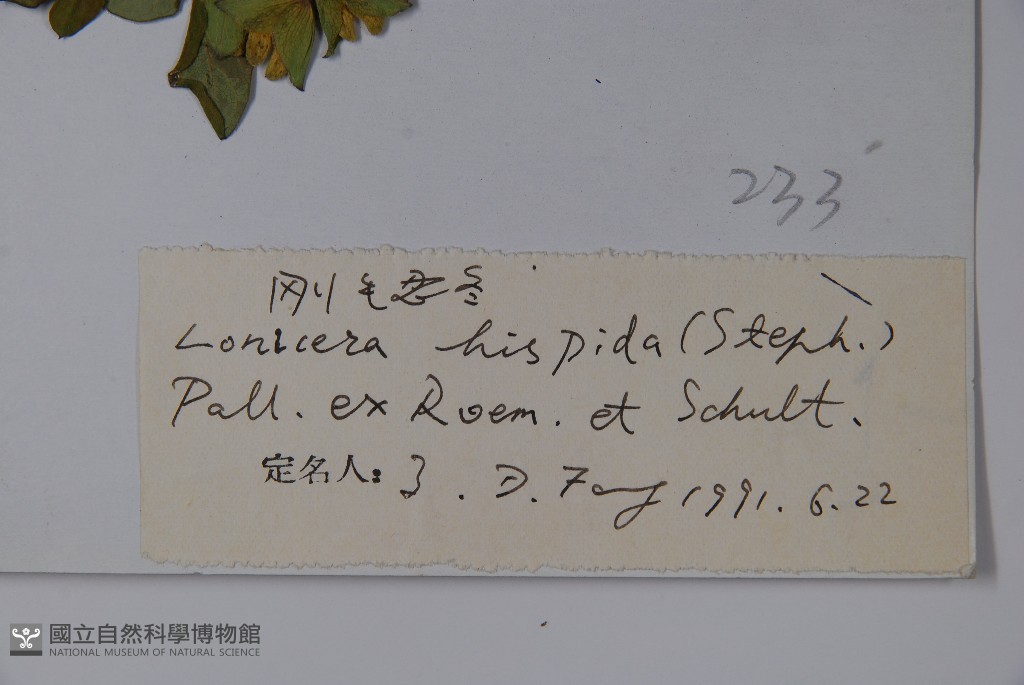 233
刚毛忍冬
Lonicera hispida (Steph.)
Pall. ex Roem. et Schult.
定名人: J. D. Fang 1991. 6. 22
國立自然科學博物館
NATIONAL MUSEUM OF NATURAL SCIENCE